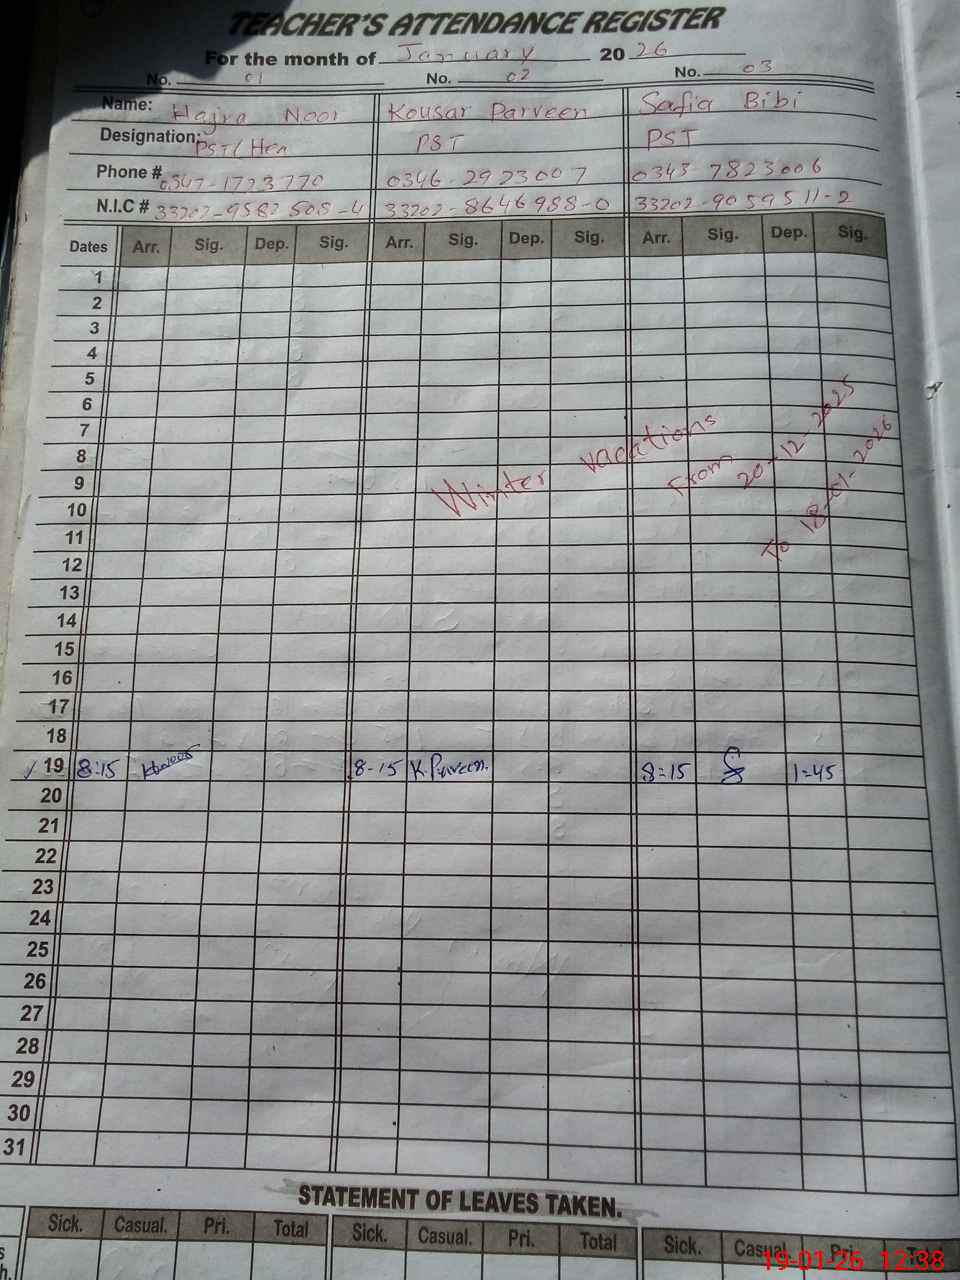 TEACHER'S ATTENDANCE REGISTER
For the month of January 2026
No. 01 No. 02 No. 03
Name: Hajra Noor Kousar Parveen Safia Bibi
Designation: PST PST PST
Phone # 0346-2923007 0343-7823006
N.I.C # 33202-8646988-0 33202-9059511-2
Dates Arr. Sig. Dep. Sig. Arr. Sig. Dep. Sig. Arr. Sig. Dep. Sig.
1
2
3
4
5
6
7
8
9
10
11
12
13
14
15
16
17
18
Winter vacations From 20-12-2025
To 18-01-2026
19 8:15 8-15 K.Parveen. 8=15 1=45
20
21
22
23
24
25
26
27
28
29
30
31
STATEMENT OF LEAVES TAKEN.
Sick. Casual. Pri. Total Sick. Casual. Pri. Total Sick. Casual. Pri. Total
19-01-26 12:38